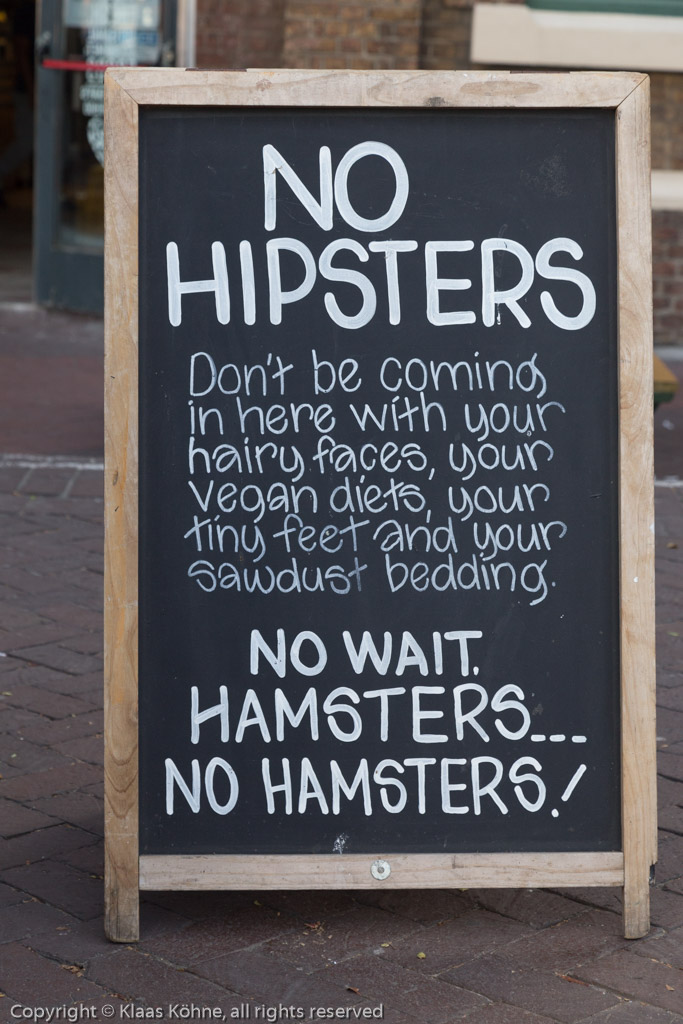 NO
HIPSTERS
Don't be coming
in here with your
hairy faces, your
vegan diets, your
tiny feet and your
sawdust bedding.
NO WAIT.
HAMSTERS...
NO HAMSTERS!
Copyright © Klaas Köhne, all rights reserved